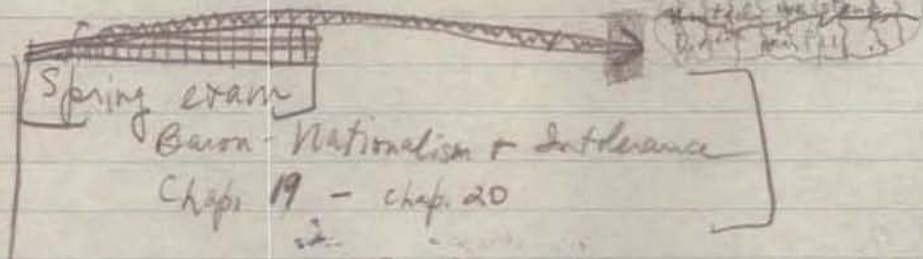 Spring exam
Baron - Nationalism + Intolerance
Chap. 19 - chap. 20